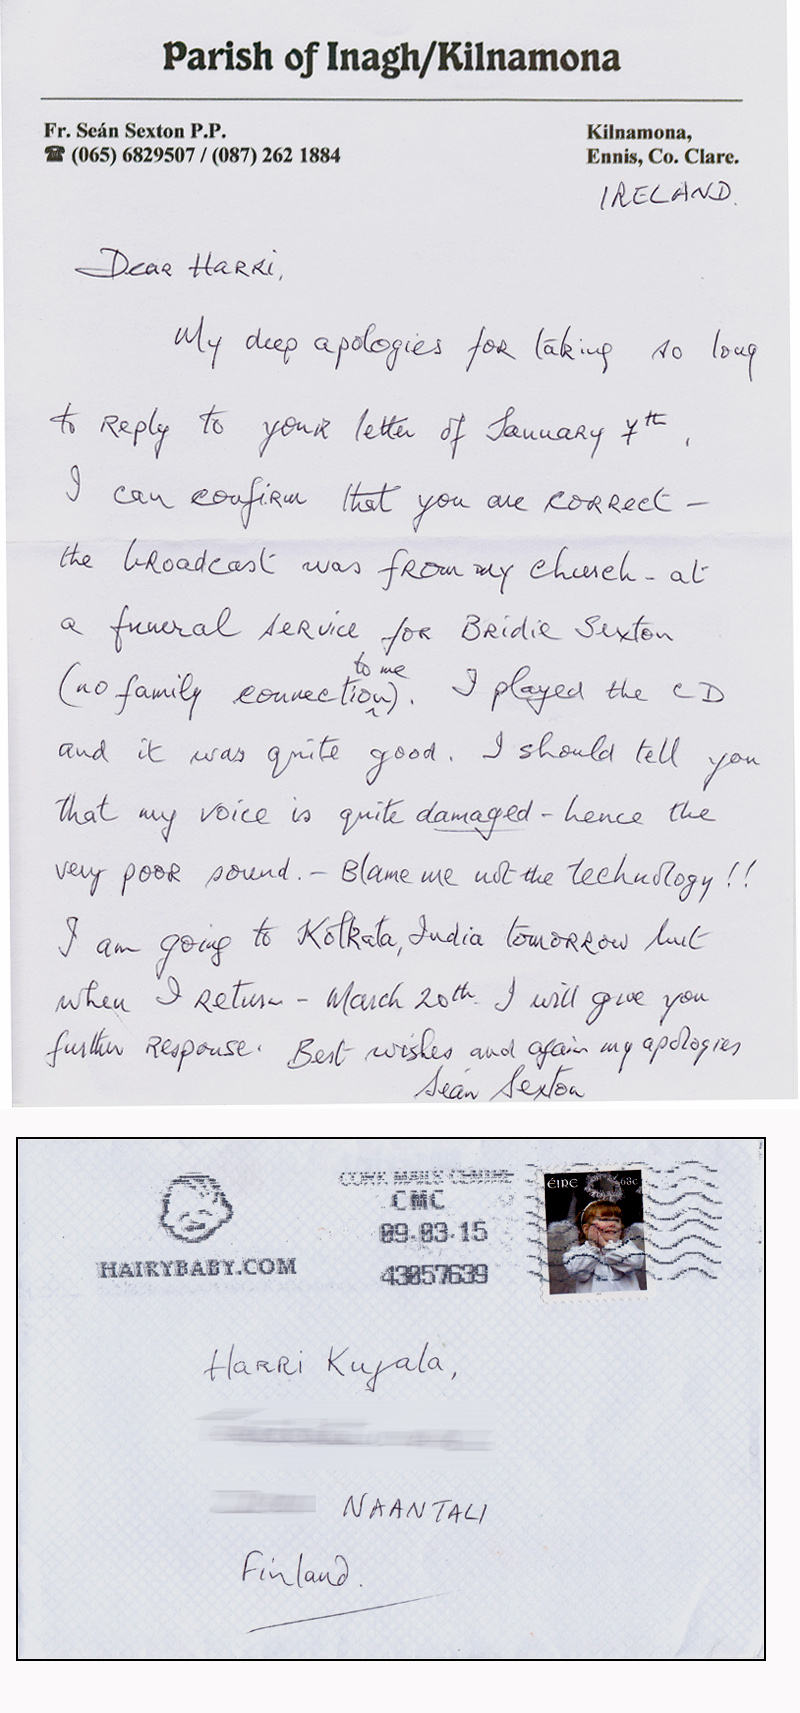 Parish of Inagh/Kilnamona
Fr. Seán Sexton P.P.
☎ (065) 6829507 / (087) 262 1884
Kilnamona,
Ennis, Co. Clare.
IRELAND.
Dear Harri,
My deep apologies for taking so long
to reply to your letter of January 7th,
I can confirm that you are correct –
the broadcast was from my church - at
a funeral service for Bridie Sexton
(no family connection to me). I played the CD
and it was quite good. I should tell you
that my voice is quite damaged - hence the
very poor sound. – Blame me not the technology!!
I am going to Kolkata, India tomorrow but
when I return - March 20th. I will give you
further response. Best wishes and again my apologies
Seán Sexton
HAIRYBABY.COM
CORK MAILS CENTRE
CMC
09-03-15
43057639
ÉIRE 68c
Harri Kujala,
NAANTALI
Finland.